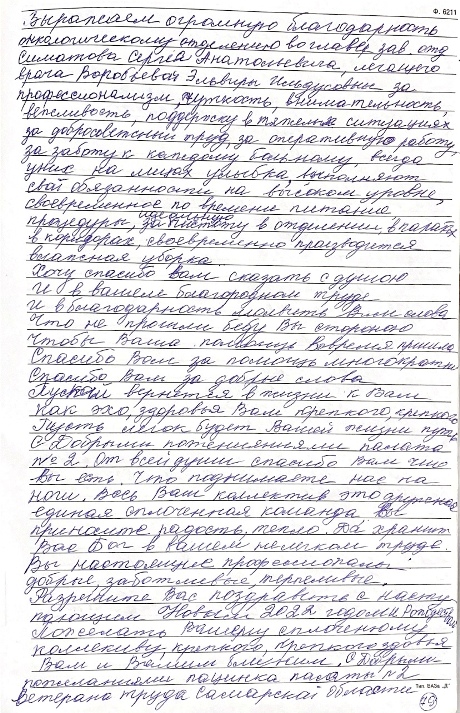 Ф. 6211
Выражаем огромную благодарность
онкологическому отделению во главе зав. отд
Симатова Сергея Анатольевича, лечащего
врача Воробьевой Эльвиры Ильдусовны за
профессионализм, чуткость, внимательность,
вежливость, поддержку в тяжелых ситуациях
за добросовестный труд, за оперативную работу,
за заботу к каждому больному, всегда
у них на лицах улыбка выполняют
свои обязанности на высоком уровне,
своевременное по времени питание
процедуры, идеальную чистоту в отделении, в палатах
в коридорах, своевременно производится
влажная уборка.
Хочу спасибо Вам сказать с душою
И в вашем благородном труде
И в благодарность молвить Вам слова
Что не прошли беду Вы стороною
Чтобы Ваша помощь вовремя пришла
Спасибо Вам за помощь многократно
Спасибо Вам за добрые слова
Пускай вернется в жизни к Вам
Как эхо, здоровья Вам крепкого, крепкого
Пусть легок будет Вашей жизни путь
С Добрыми пожеланиями палата
№ 2. От всей души спасибо Вам что
Вы есть. Что поднимаете нас на
ноги, Весь Ваш коллектив это дружная
единая сплоченная команда Вы
приносите радость, тепло. Да хранит
Вас Бог в вашем нелегком труде.
Вы настоящие профессионалы
добрые, заботливые терпеливые.
Разрешите Вас поздравить с насту
пающим Новым 2022 годом и Рождеством
Пожелать Вашему сплоченному
коллективу, крепкого, крепкого здоровья
Вам и Вашим близким, С Добрыми
пожеланиями пациентка палаты №2
Ветерана труда Самарской Области
Тип. ВАЗа